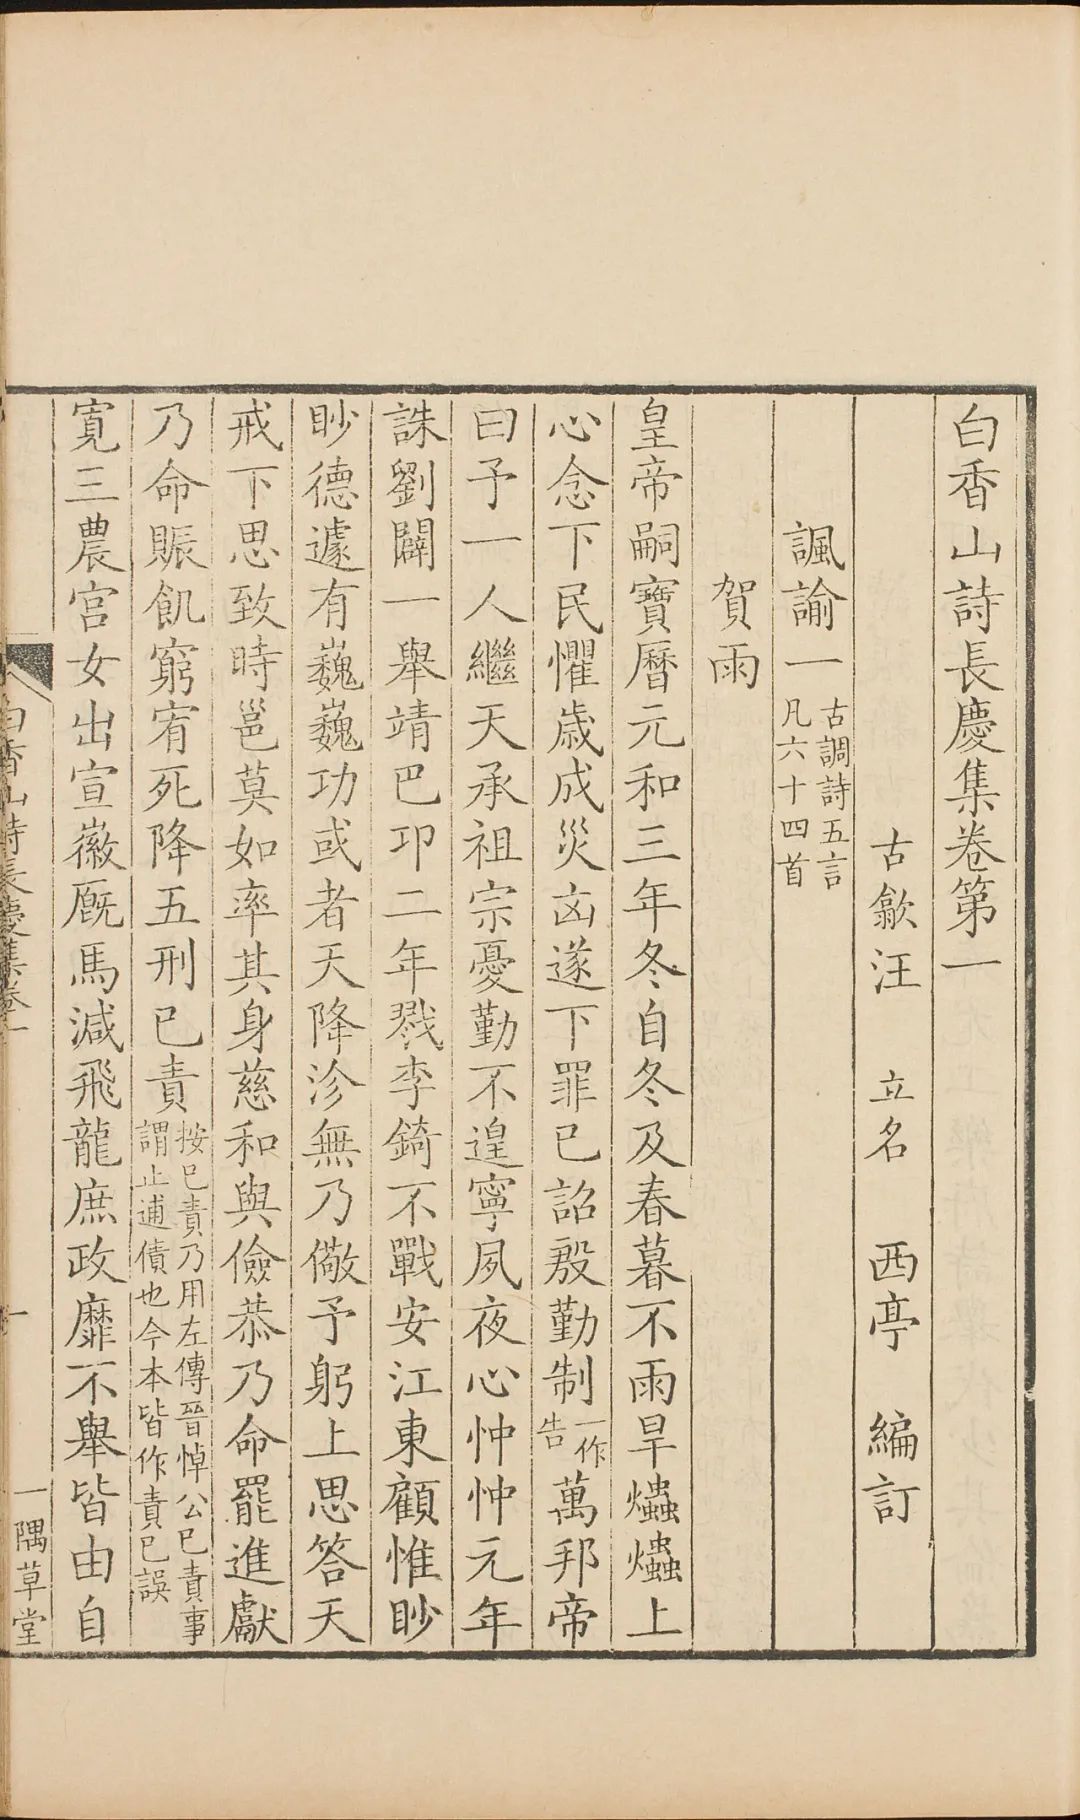 白香山詩長慶集卷第一
古歙汪 立名 西亭 編訂
諷諭一 古調詩五言
凡六十四首
賀雨
皇帝嗣寶曆元和三年冬自冬及春暮不雨旱爞爞上
心念下民懼歲成災凶遂下罪已詔殷勤制一作告萬邦帝
曰予一人繼天承祖宗憂勤不遑寧夙夜心忡忡元年
誅劉闢一舉靖巴邛二年戮李錡不戰安江東顧惟眇
眇德遽有巍巍功或者天降沴無乃儆予躬上思答天
戒下思致時邕莫如率其身慈和與儉恭乃命罷進獻
乃命賑飢窮宥死降五刑已責按已責乃用左傳晉悼公已責事
謂止逋債也今本皆作責已誤
寬三農宮女出宣徽厩馬減飛龍庶政靡不舉皆由自
白香山詩長慶集卷一
一
一隅草堂